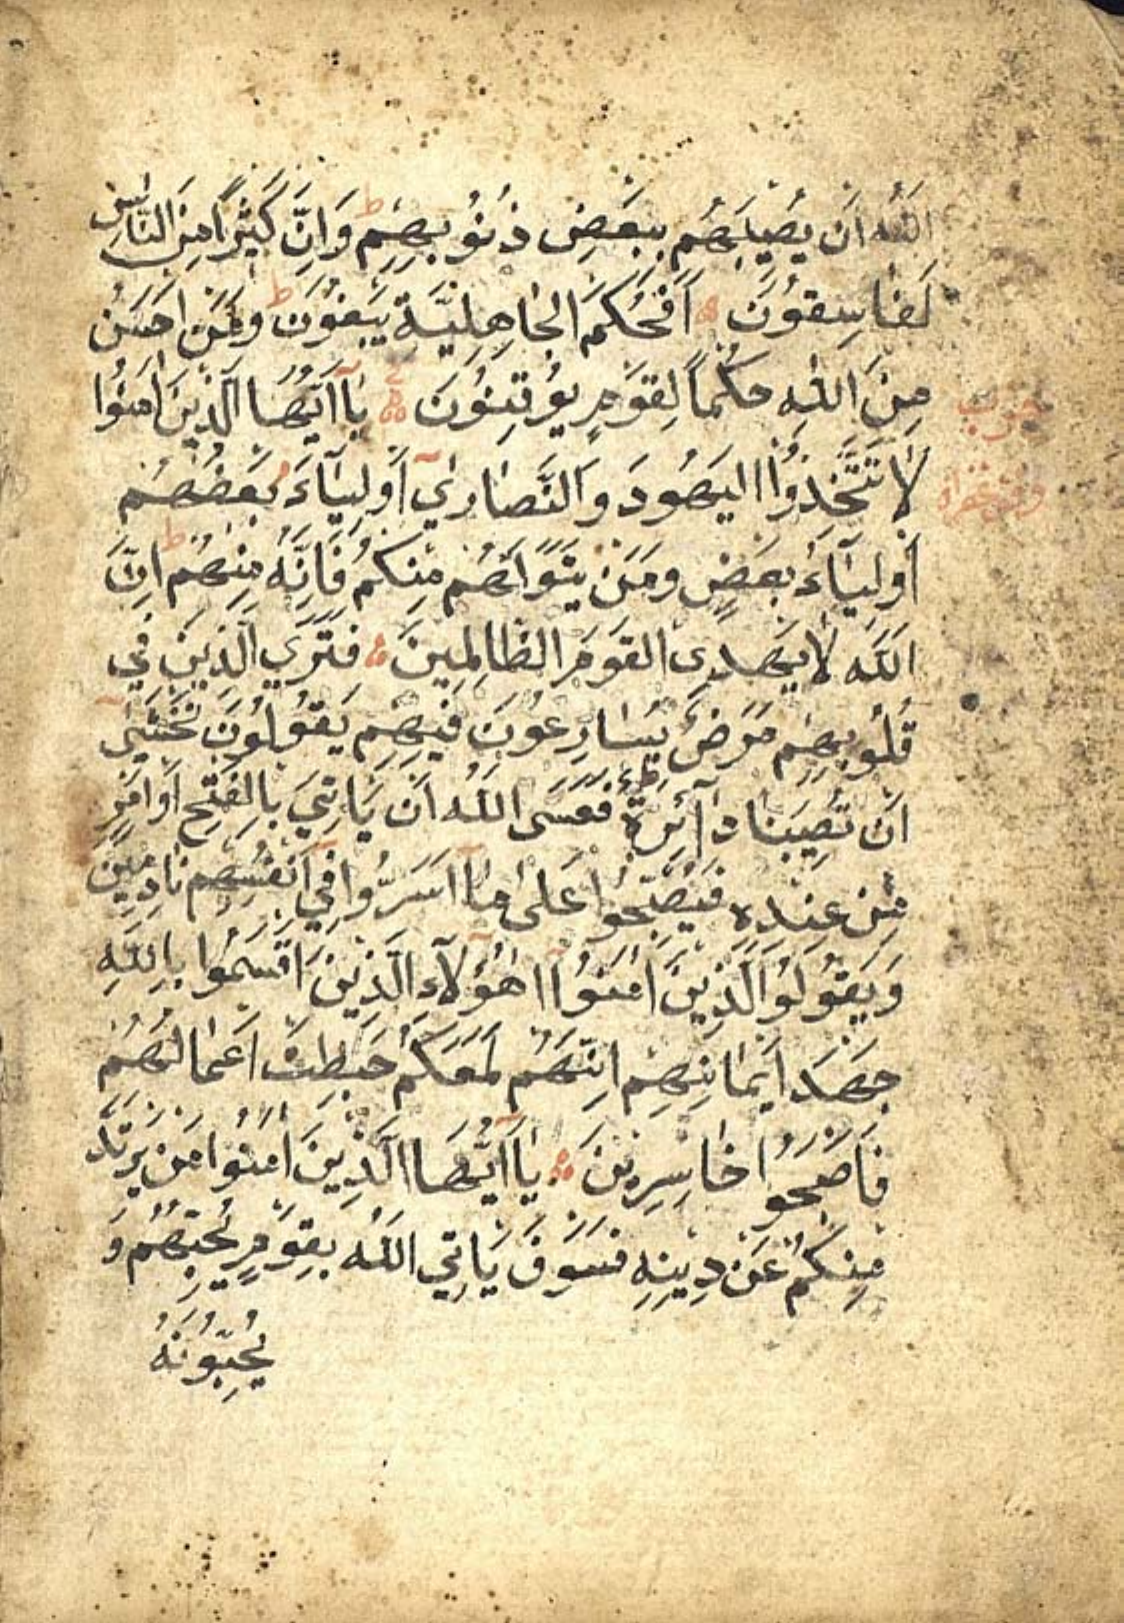 اللَّهُ اَن يُصِيبَهُم بِبَعضِ ذُنُوبِهِم ط وَاِنَّ كَثِيرًا مِنَ النَّاسِ
لَفَاسِقُونَ اَفَحُكمَ الجَاهِلِيَّةِ يَبغُونَ ط وَمَن اَحسَنُ
مِنَ اللهِ حُكمًا لِقَومٍ يُوقِنُونَ يَآاَيُّهَا الَّذِينَ اٰمَنُوا
لَا تَتَّخِذُوا اليَهُودَ وَالنَّصَارٰي اَولِيَآءَ بَعضُهُم
اَولِيَآءُ بَعضٍ وَمَن يَتَوَلَّهُم مِنكُم فَاِنَّهُ مِنهُم ط اِنَّ
اللَّهَ لَا يَهدِي القَومَ الظَّالِمِينَ فَتَرَي الَّذِينَ فِي
قُلُوبِهِم مَرَضٌ يُسَارِعُونَ فِيهِم يَقُولُونَ نَخشٰي
اَن تُصِيبَنَا دَآئِرَةٌ ط فَعَسَي اللَّهُ اَن يَاتِيَ بِالفَتحِ اَو اَمرٍ
مِن عِندِه فَيُصبِحُوا عَلٰي مَآ اَسَرُّوا فِي اَنفُسِهِم نَادِمِينَ
وَيَقُولُ الَّذِينَ اٰمَنُوا اَهٰؤُلَآءِ الَّذِينَ اَقسَمُوا بِاللَّهِ
جَهدَ اَيمَانِهِم اِنَّهُم لَمَعَكُم حَبِطَت اَعمَالُهُم
فَاَصبَحُوا خَاسِرِينَ يَآاَيُّهَا الَّذِينَ اٰمَنُوا مَن يَرتَدَّ
مِنكُم عَن دِينِهِ فَسَوفَ يَاتِي اللَّهُ بِقَومٍ يُحِبُّهُم وَ
يُحِبُّونَهُ